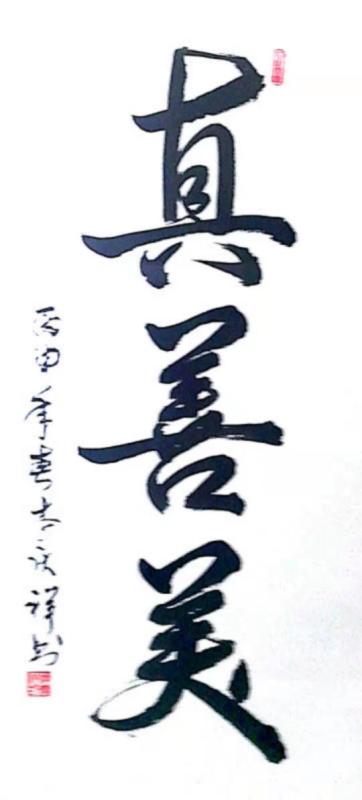 真善美
丙申年春李庆祥书